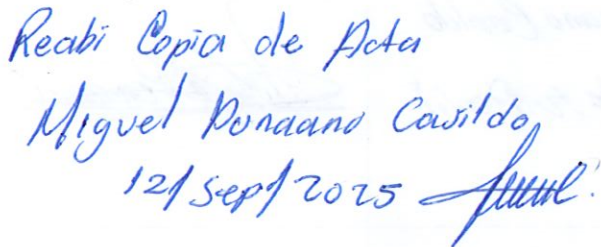 Recibi Copia de Acta
Miguel Ponciano Casildo
12/Sep/2025